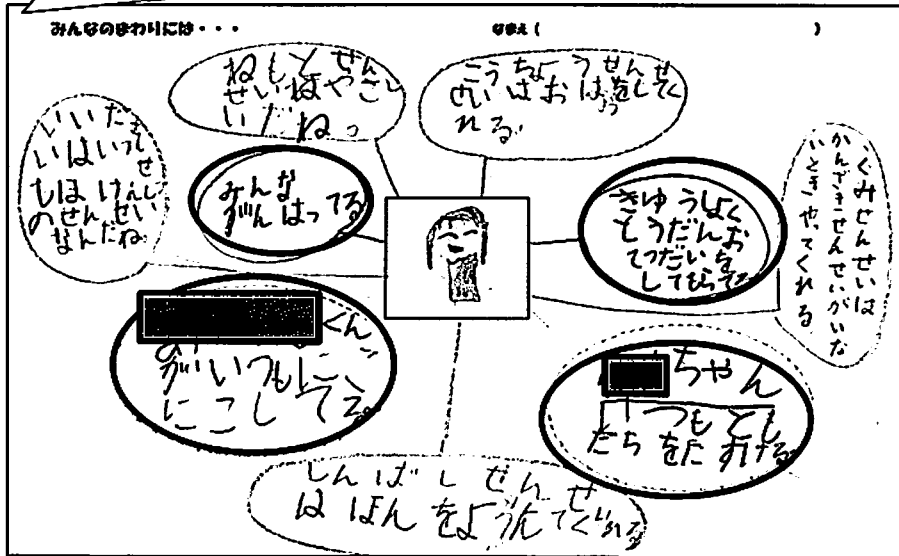 みんなのまわりには・・・
なまえ（　　　）
ねもとせん
せいはやさし
いだねっ
こうちょうせんせ
せいはおはを
してく
れる
いい
いはいっし
もほけんし
のせんせい
なんだね
みんな
がんばってる
きゅうしょく
とうだんお
てつだいを
してもらってる
くみせんせいは
かんざきせんせいがいな
いときやってくれる
くん
がいつもに
にこしてる
ちゃん
いつもとも
だちをたすける
しんばしせん
はほんをよ
んでくれる